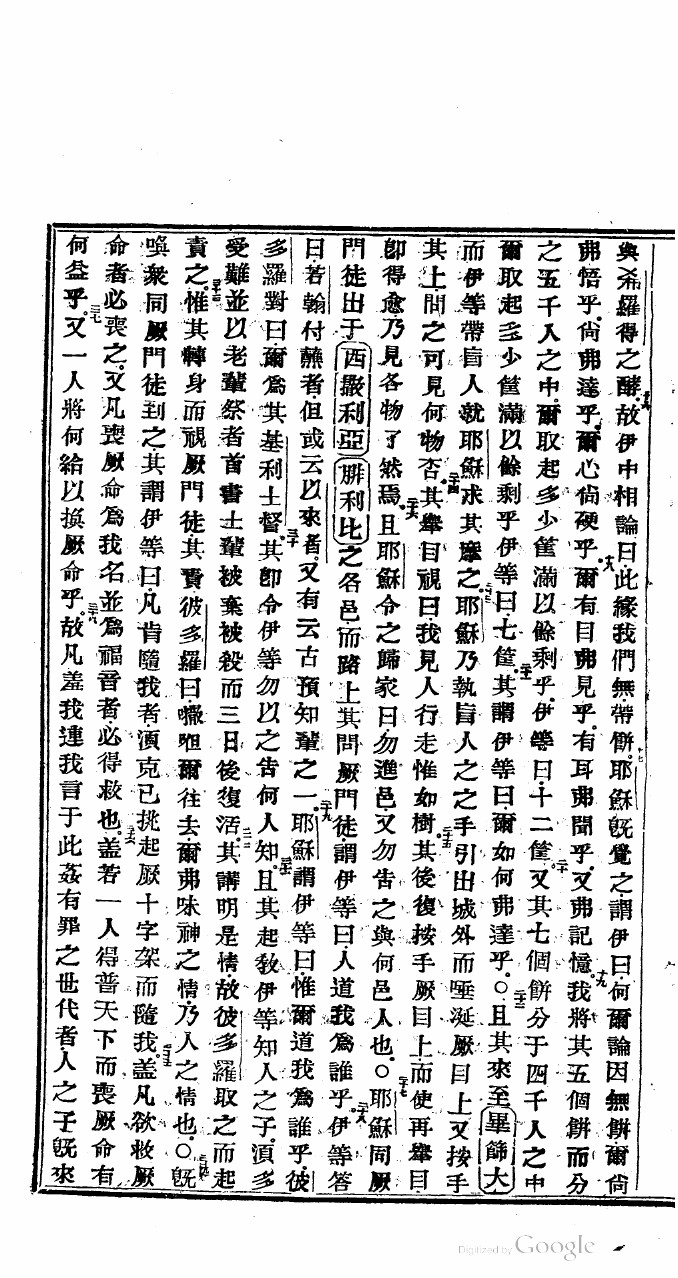 與希羅得之酵故伊中相論曰此緣我們無帶餅耶穌旣覺之謂伊曰何爾論因無餅爾尙
弗悟乎尙弗達乎爾心尙硬乎爾有目弗見乎有耳弗聞乎又弗記憶我將其五個餅而分
之五千人之中爾取起多少筐滿以餘剩乎伊等曰十二筐又其七個餅分于四千人之中
爾取起多少筐滿以餘剩乎伊等曰七筐其謂伊等曰爾如何弗達乎○且其來至畢篩大
而伊等帶盲人就耶穌求其摩之耶穌乃執盲人之之手引出城外而唾涎厥目上又按手
其上問之可見何物否其舉目視曰我見人行走惟如樹其後復按手厥目上而使再舉目
卽得愈乃見各物了然焉且耶穌令之歸家曰勿進邑又勿吿之與何邑人也○耶穌同厥
門徒出于西撒利亞腓利比之各邑而路上其問厥門徒謂伊等曰人道我爲誰乎伊等答
曰若翰付蘸者但或云以來者又有云古預知輩之一耶穌謂伊等曰惟爾道我爲誰乎彼
多羅對曰爾爲其基利士督其卽令伊等勿以之吿何人知且其起敎伊等知人之子湏多
受難並以老輩祭者首書士輩被棄被殺而三日後復活其講明是情故彼多羅取之而起
責之惟其轉身而視厥門徒其責彼多羅曰嗷呾爾往去爾弗味神之情乃人之情也○旣
喚衆同厥門徒到之其謂伊等曰凡肯隨我者湏克己挑起厥十字架而隨我蓋凡欲救厥
命者必喪之又凡喪厥命爲我名並爲福音者必得救也蓋若一人得普天下而喪厥命有
何益乎又一人將何給以換厥命乎故凡羞我連我言于此姦有罪之世代者人之子旣來
Digitized by Google